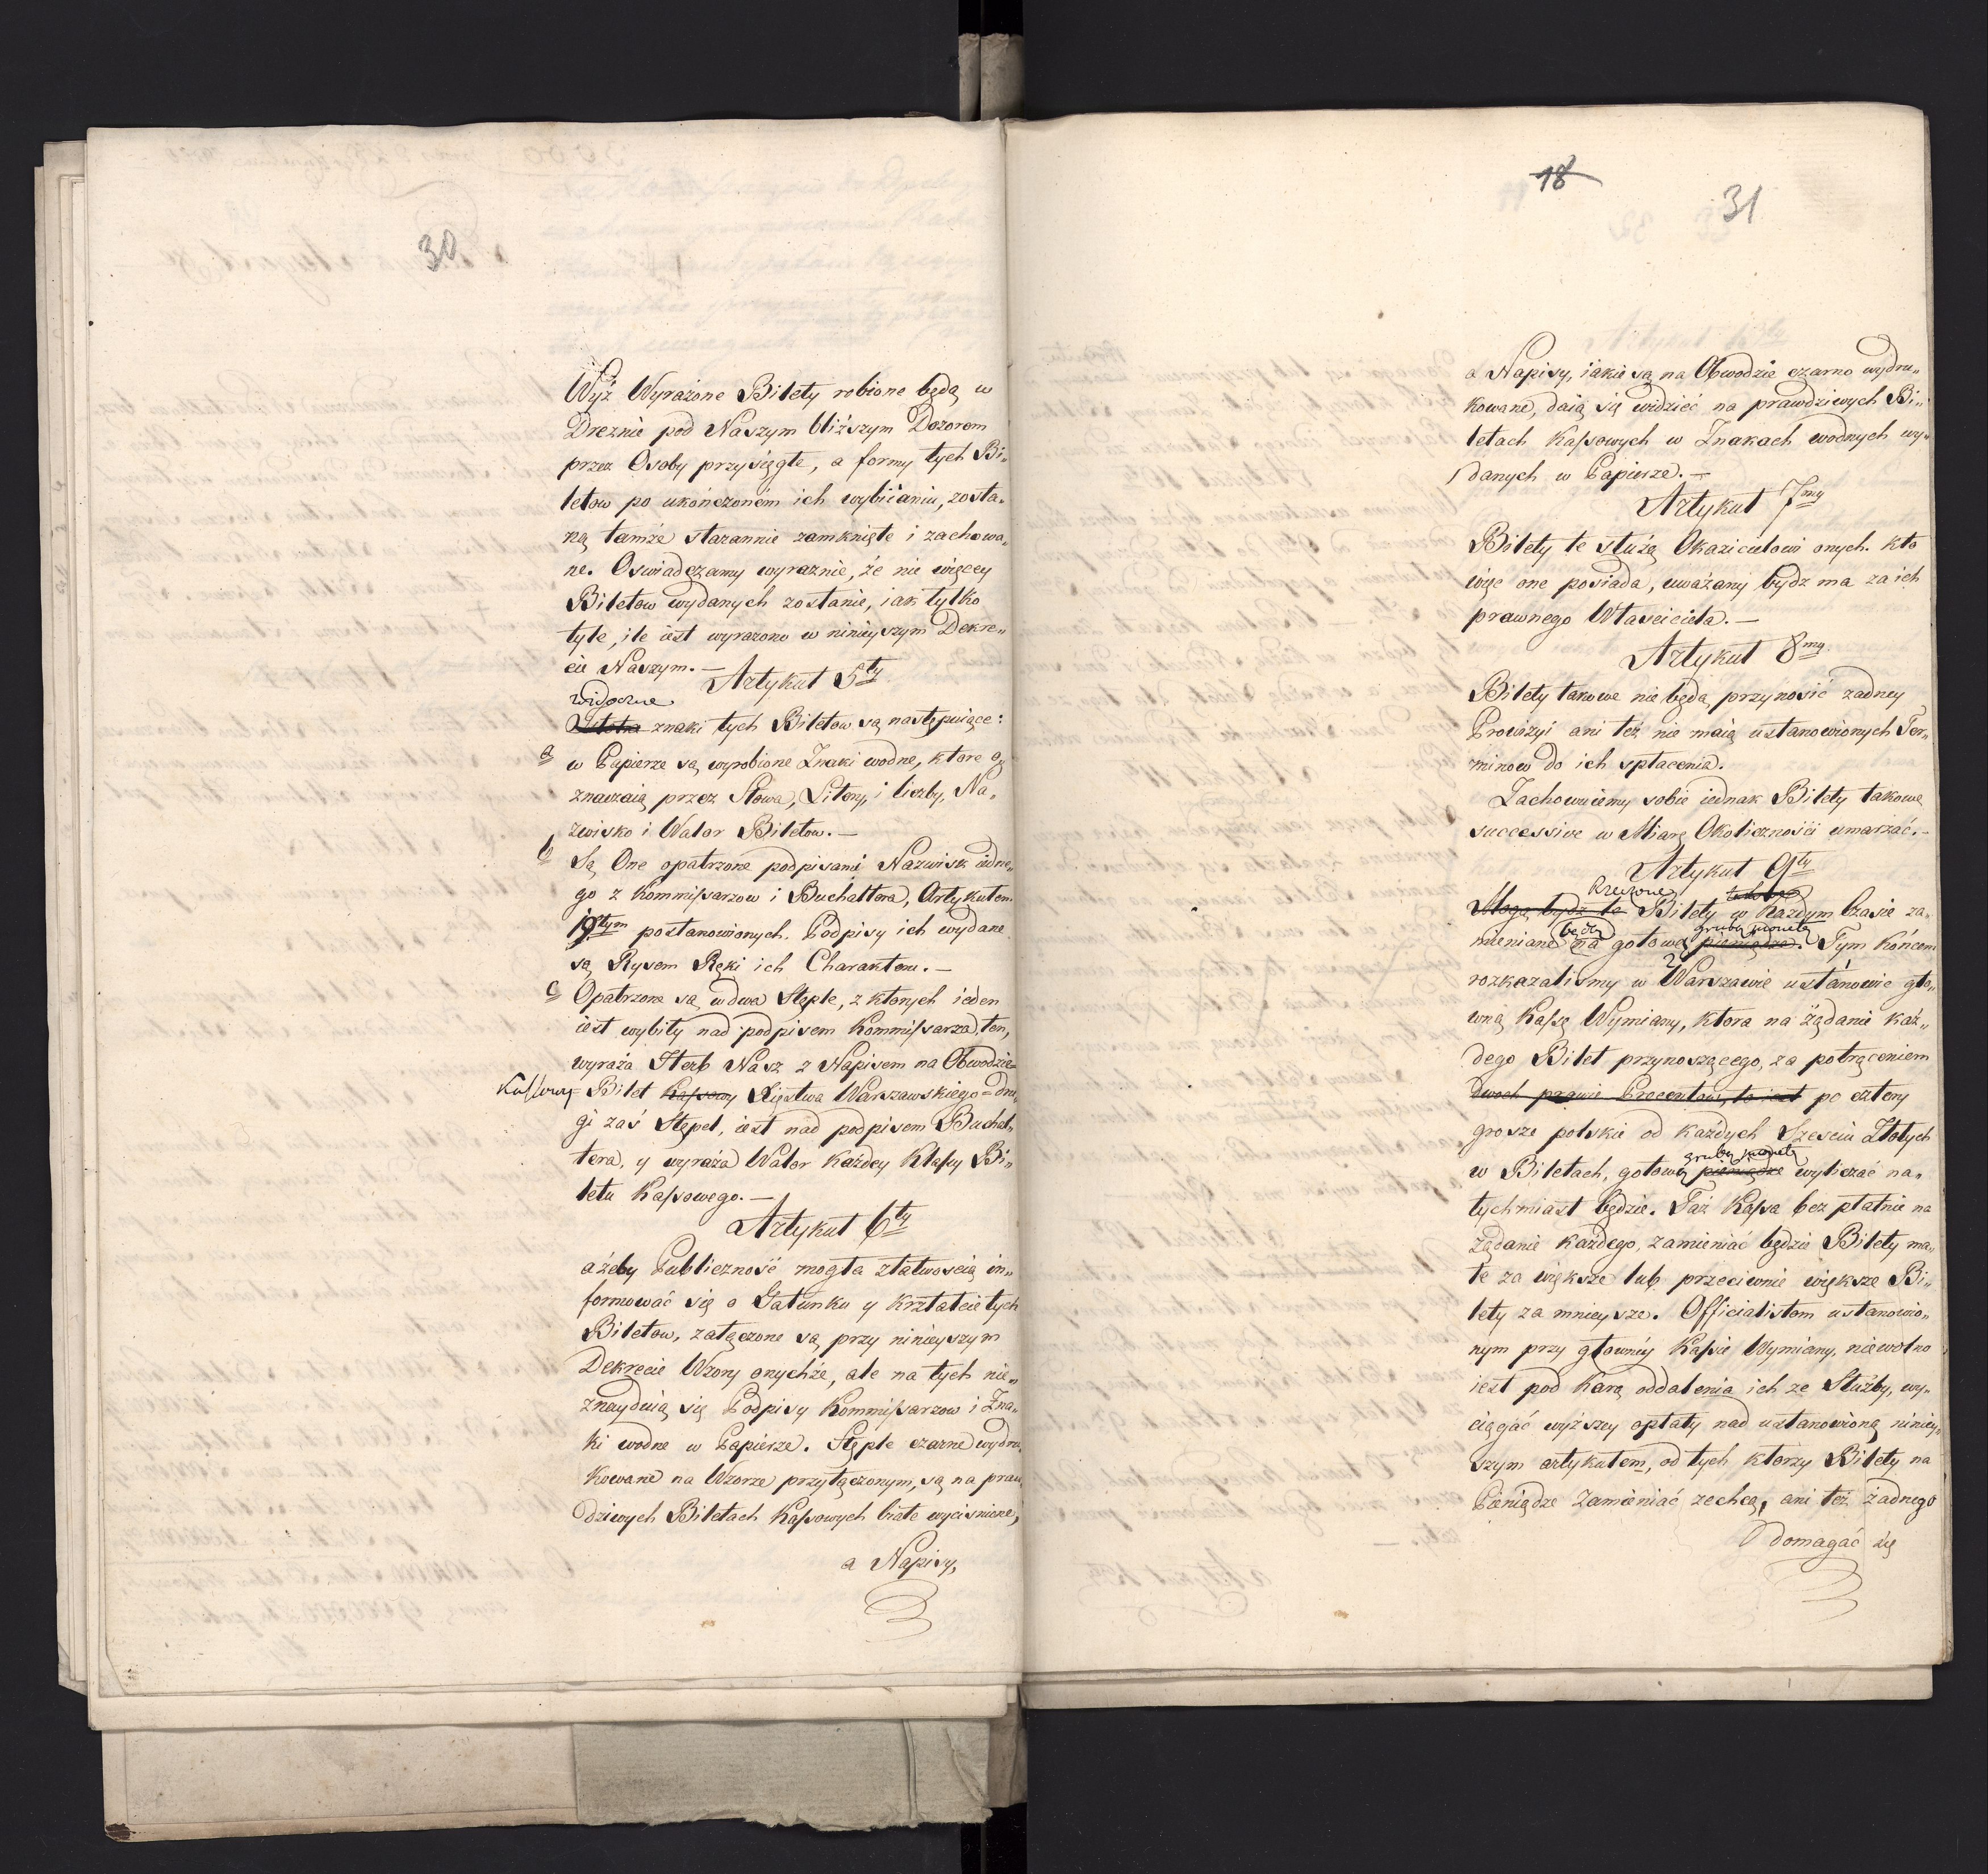 30
Wyż Wyrażone Bilety robione będą w
Dreznie pod Naszym bliższym Dozorem
przez Osoby przysięgłe, a formy tych Bi„
letow po ukończoném ich wybiianiu, zosta„
ną tamże starannie zamknięte i zachowa„
ne. Oswiadczamy wyraznie, że nie więcey
Biletow wydanych zostanie, iak tylko
tyle, ile iest wyrażono w ninieyszym Dekre„
cie Naszym. —
Artykuł 5ty
widoczne
znaki tych Biletow są następuiące:
a w Papierze są wyrobione Znaki wodne, ktore o„
znaczaią przez Słowa, Litery, i liczby, Na„
zwisko i Walor Biletow. —
b Są One opatrzone podpisami Nazwisk iedne„
go z Kommissarzow i Buchaltera, Artykułem
19tym postanowionych. Podpisy ich wydane
są Rysem Ręki ich Charakteru. —
c Opatrzone są w dwa Stęple, z ktorych ieden
iest wybity nad podpisem Kommissarza, ten,
wyraża Herb Nasz z Napisem na Obwodzie=
Kassowy Bilet Kassowy Xięstwa Warszawskiego= dru„
gi zaś Stępel, iest nad podpisem Buchal„
tera, y wyraża Walor każdey Klassy Bi„
letu Kassowego. —
Artykuł 6ty
ażeby Publiczność mogła złatwością in„
formować się o Gatunku y kształcie tych
Biletow, załączone są przy ninieyszym
Dekrecie Wzory onychże, ale na tych nie„
znayduią się Podpisy Kommissarzow i Zna„
ki wodne w Papierze. Stęple czarne wydru„
kowane na Wzorze przyłączonym, są na praw„
dziwych Biletach Kassowych białe wycisnione,
a Napisy,
18
31
a Napisy, iakie są na Obwodzie czarno wydru„
kowane, daią się widzieć na prawdziwych Bi„
letach Kassowych w Znakach wodnych wy„
danych w Papierze. —
Artykuł 7my
Bilety te służą Okazicielowi onych. kto
więc one posiada, uważany bydz ma za ich
prawnego Własciciela. —
Artykuł 8my
Bilety takowe nie będą przynosić żadney
Prowizyi ani też nie maią ustanowionych Ter„
minow do ich spłacenia.
Zachowuiemy sobie iednak Bilety takowe
successive w Miarę Okoliczności umarzać. —
Artykuł 9ty
Rzeczone takowe
Mogą bydz te Bilety w każdym Czasie za„
będą grubą monetą
mieniane na gotowe pieniądze. Tym końcem
rozkazalismy w Warszawie ustanowic gło„
wną Kassę Wymiany, ktora na żądanie każ„
dego Bilet przynoszącego, za potrąceniem
dwoch prawie Procentow, to iest po cztery
grosze polskie od każdych Szesciu Złotych
grubą monetą
w Biletach, gotowe pieniądze wyliczać na„
tychmiast będzie. Taż Kassa bez płatnie na
Żądanie każdego, zamieniać będzie Bilety ma„
łe za większe lub przeciwnie większe Bi„
lety za mnieysze. Officialistom ustanowio„
nym przy głowney Kassie Wymiany, niewolno
iest pod Karą oddalenia ich ze Służby, wy„
ciągać wyższey opłaty nad ustanowioną niniey„
szym artykułem, od tych ktorzy Bilety na
Pieniądze Zamieniać zechcą, ani też żadnego
domagać się